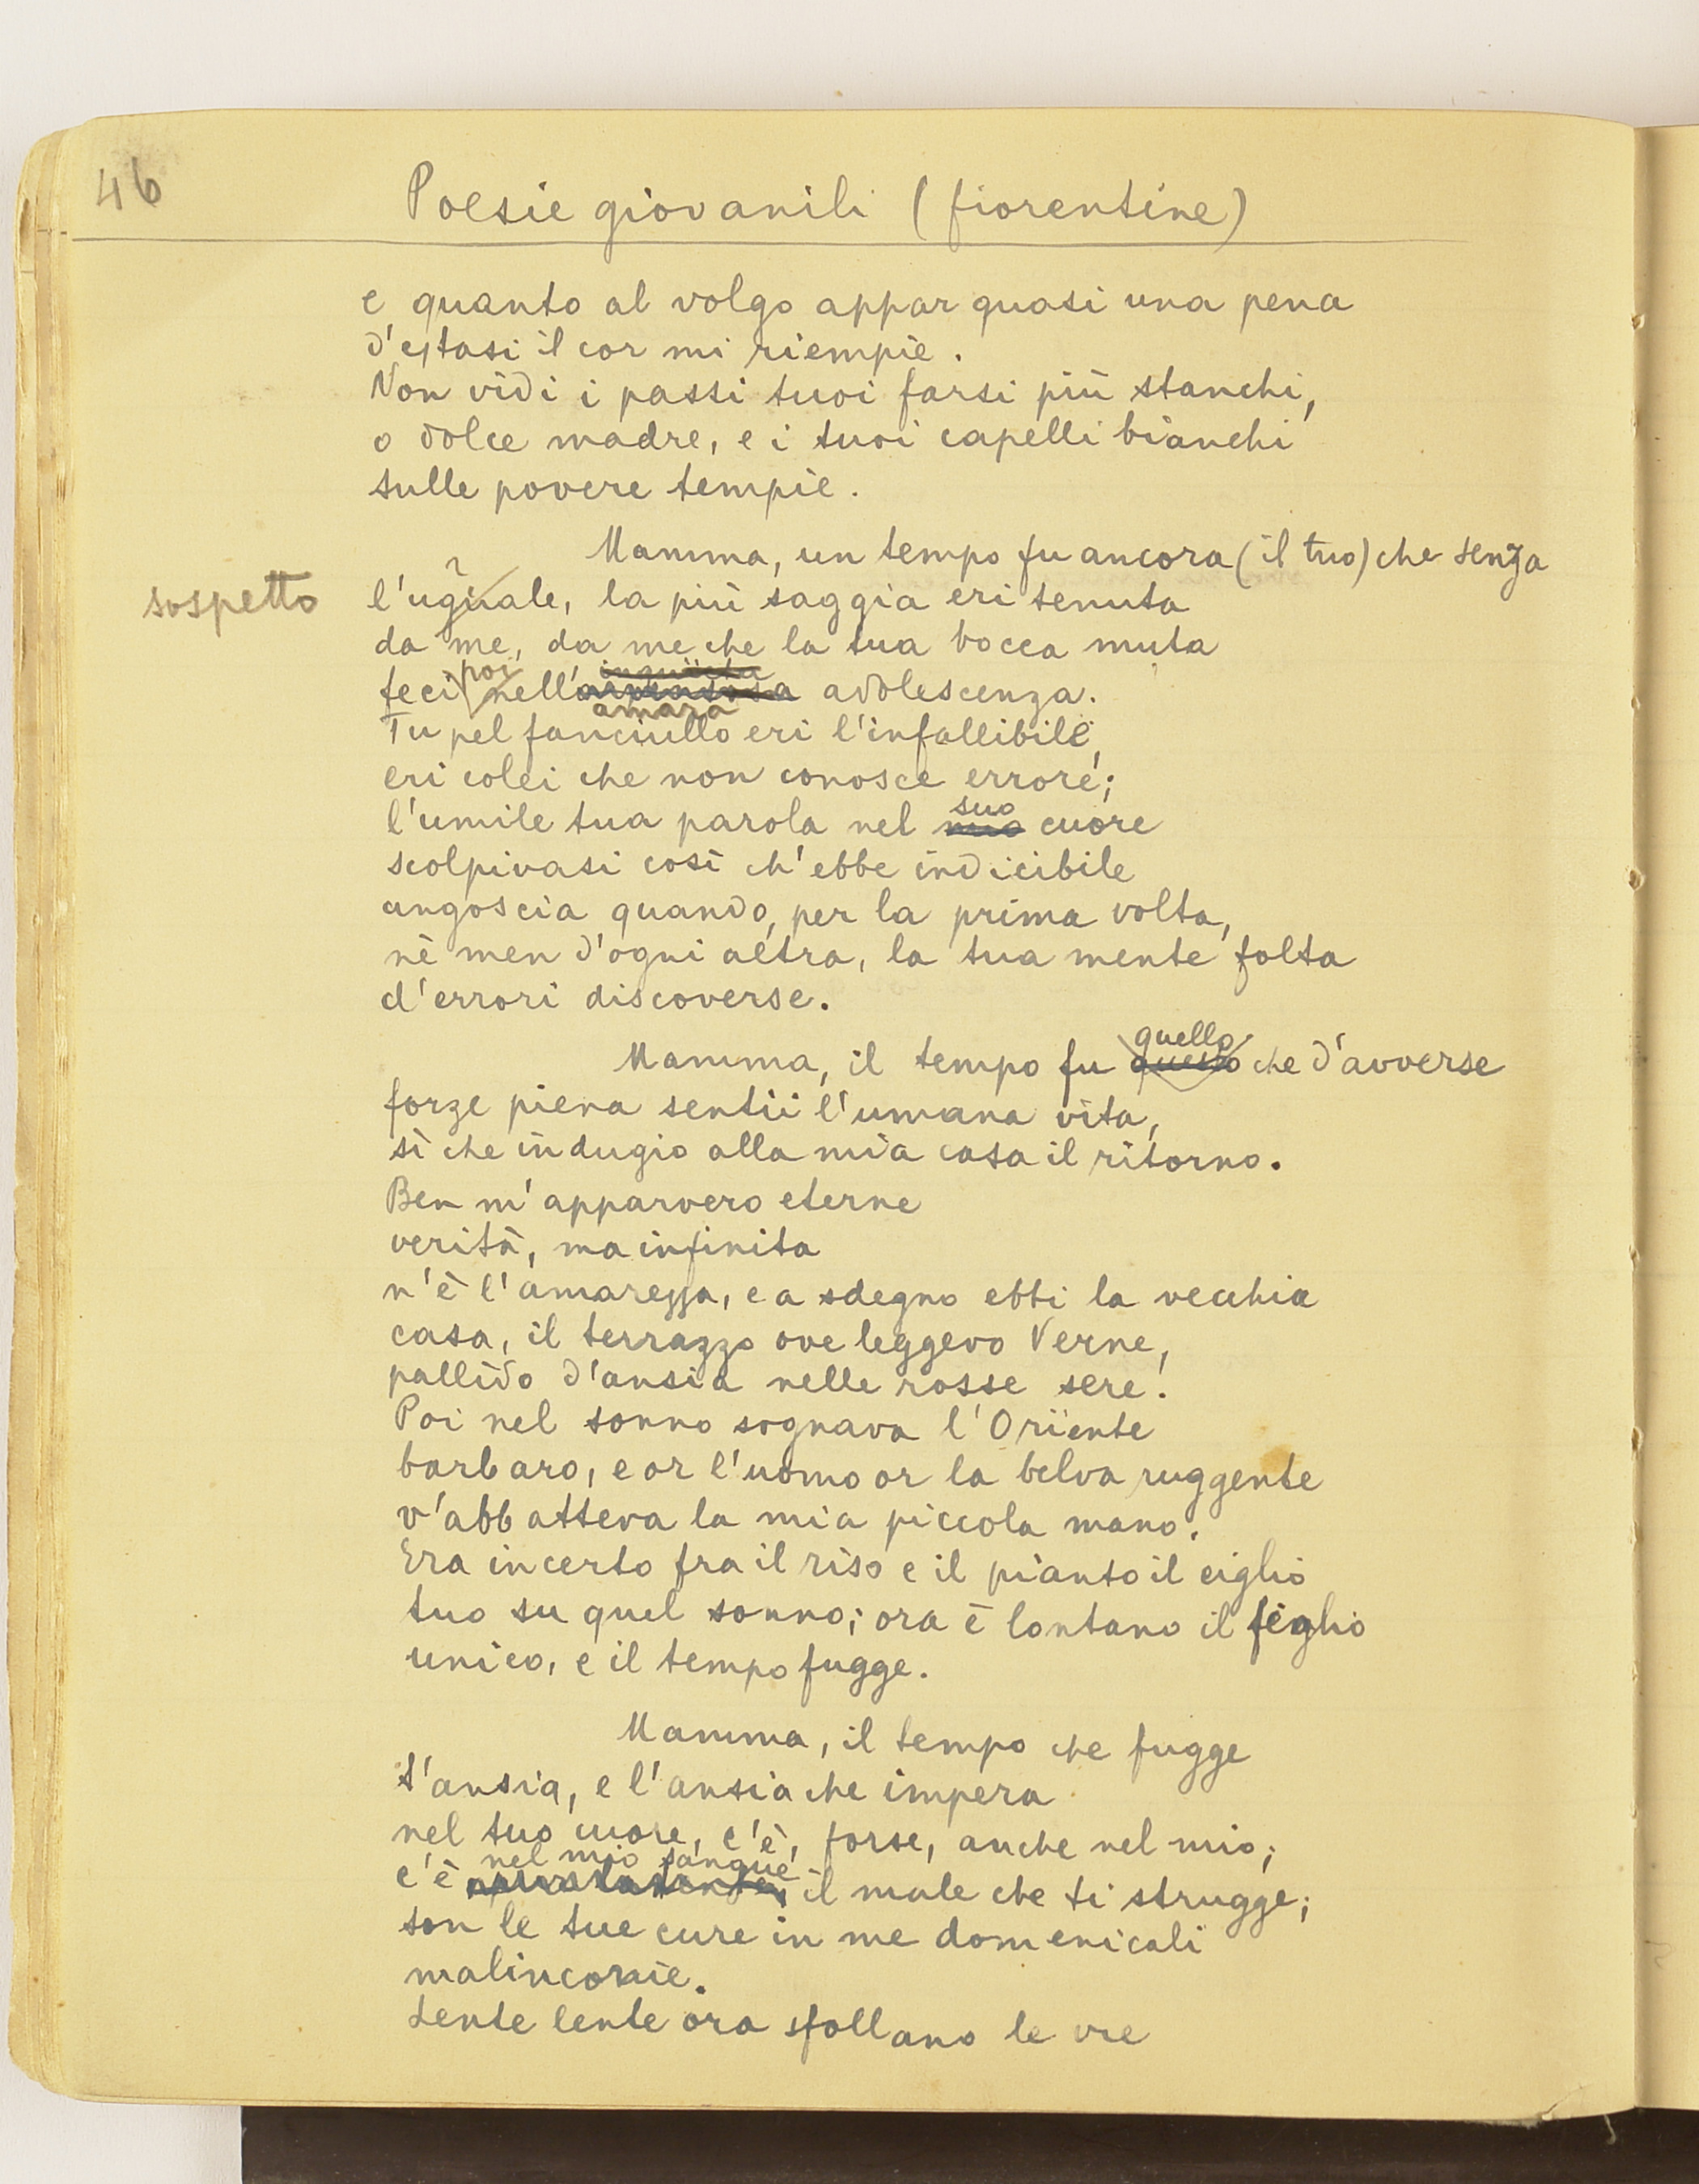 46
Poesie giovanili (fiorentine)
e quanto al volgo appar quasi una pena
d'estasi il cor mi riempie.
Non vidi i passi tuoi farsi più stanchi,
o dolce madre, e i tuoi capelli bianchi
sulle povere tempie.
Mamma, un tempo fu ancora (il tuo) che senza
sospetto
l'uguale, la più saggia eri tenuta
da me, da me che la tua bocca muta
poi inquïeta
feci nell' adolescenza.
amara
Tu pel fanciullo eri l'infallibile,
eri colei che non conosce errore;
suo
l'umile tua parola nel mio cuore
scolpivasi così ch'ebbe indicibile
angoscia quando, per la prima volta,
nè men d'ogni altra, la tua mente folta
d'errori discoverse.
quello
Mamma, il tempo fu questo che d'avverse
forze piena sentii l'umana vita,
sì che indugio alla mia casa il ritorno.
Ben m'apparvero eterne
verità, ma infinita
n'è l'amarezza, e a sdegno ebbi la vecchia
casa, il terrazzo ove leggevo Verne,
pallido d'ansia nelle rosse sere.
Poi nel sonno sognava l'Orïente
barbaro, e or l'uomo or la belva ruggente
v'abbatteva la mia piccola mano.
Era incerto fra il riso e il pianto il ciglio
tuo su quel sonno; ora è lontano il figlio
unico, e il tempo fugge.
Mamma, il tempo che fugge
t'ansia, e l'ansia che impera
nel tuo cuore, c'è, forse, anche nel mio;
nel mio sangue
c'è il male che ti strugge;
son le tue cure in me domenicali
malinconie.
Lente lente ora sfollano le vie